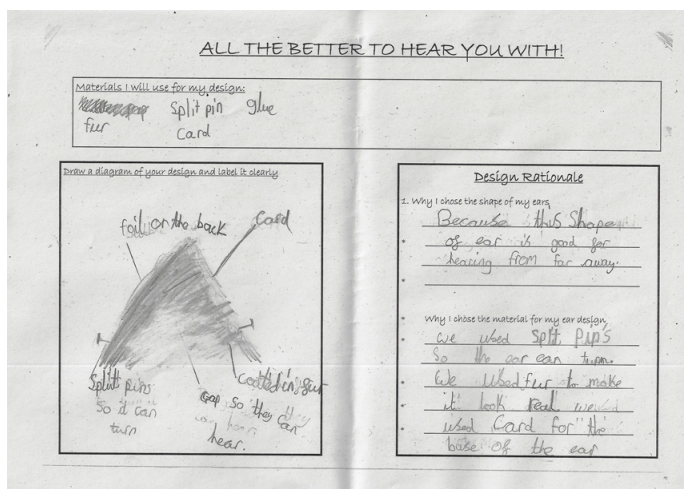 ALL THE BETTER TO HEAR YOU WITH!
Materials I will use for my design:
Split pin glue
fur
Card
Draw a diagram of your design and label it clearly
foil on the back
Card
Split pins
So it can
turn
gap So they can
hear.
coated in fur
Design Rationale
1. Why I chose the shape of my ears
Because this Shape
of ear is good for
hearing from far away.
Why I chose the material for my ear design
we used Split Pip's
So the ear can turn.
We used fur to make
it look real we
used Card for the
base of the ear